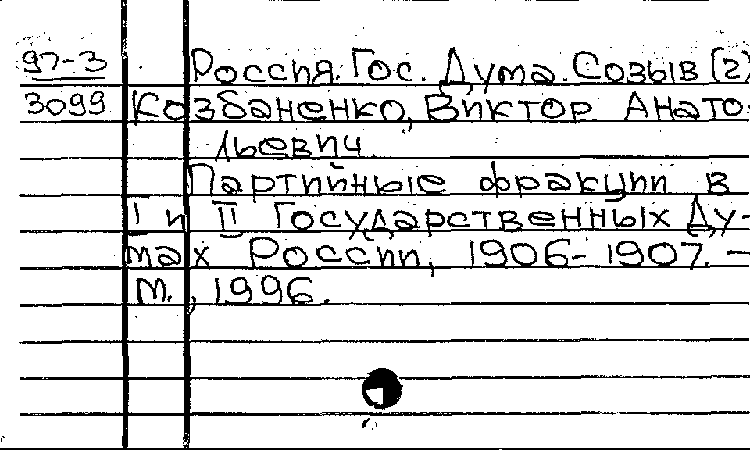 97-3 Россия. Гос. Дума. Созыв (2)
3099 Козбаненко, Виктор Анато-
льевич.
Партийные фракции в
I и II Государственных Ду-
мах России, 1906-1907. –
М., 1996.